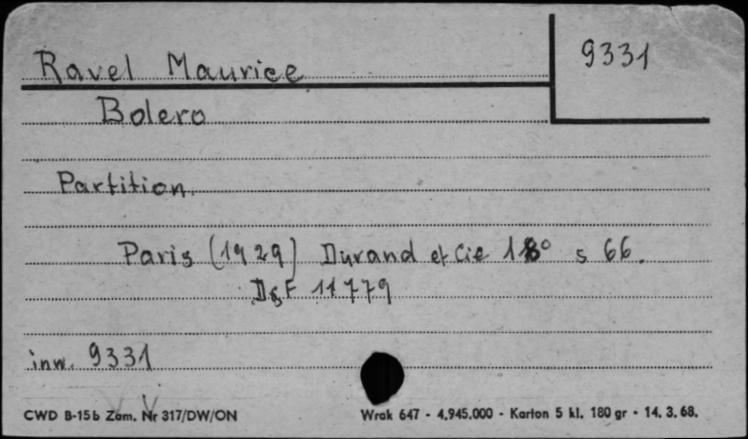 Ravel Maurice
9331
Bolero
Partition
Paris (1929) Durand et Cie 18° s 66.
D&F 11779
inw. 9331
CWD B-15b Zam. Nr 317/DW/ON
Wrak 647 - 4.945.000 - Karton 5 kl. 180 gr - 14. 3. 68.